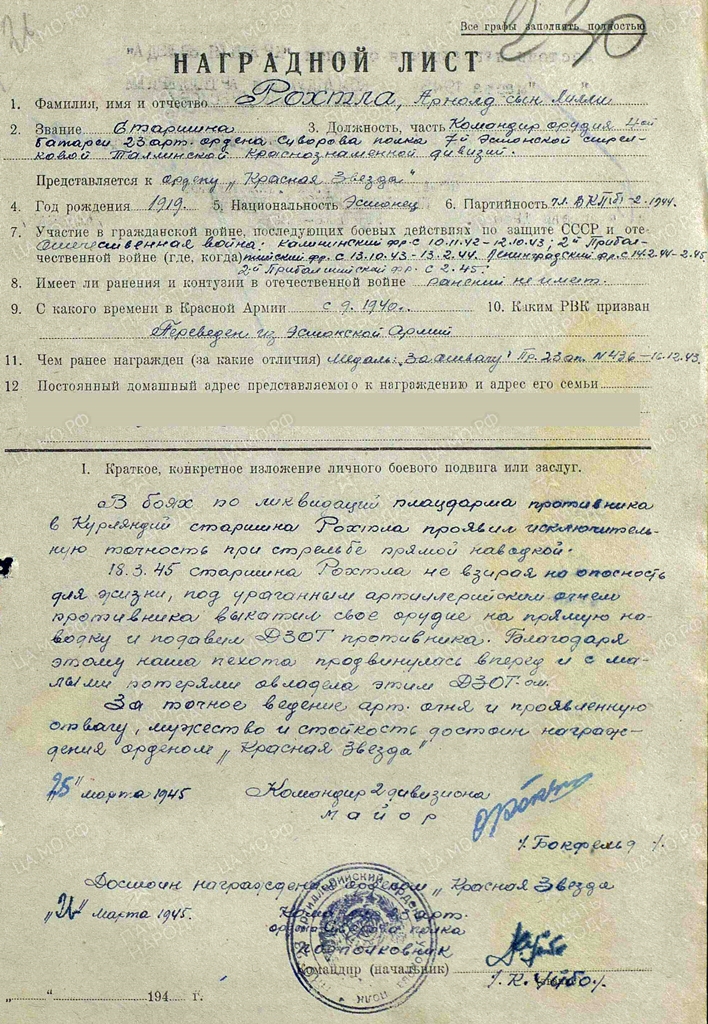 Все графы заполнять полностью
230
НАГРАДНОЙ ЛИСТ
1. Фамилия, имя и отчество Рохтла, Арнольд сын Милли
2. Звание Старшина 3. Должность, часть Командир орудия 4ой
батареи 23 арт. ордена Суворова полка 7й Эстонской стрел-
ковой Таллинской Краснознаменной дивизий.
Представляется к ордену „Красная Звезда"
4. Год рождения 1919. 5. Национальность Эстонец 6. Партийность чл. ВКП(б)-2.1944.
7. Участие в гражданской войне, последующих боевых действиях по защите СССР и оте-
Отечественная война: Калининский фр. с 10.11.42-12.10.43; 2й Прибал-
чественной войне (где, когда) тийский фр. с 13.10.43-13.2.44. Ленинградский фр. с 14.2.44-2.45
2й Прибалтийский фр. с 2.45.
8. Имеет ли ранения и контузии в отечественной войне ранений не имеет.
9. С какого времени в Красной Армии с 9.1940.. 10. Каким РВК призван
Переведен из Эстонской Армий
11. Чем ранее награжден (за какие отличия) Медаль: „За отвагу" Пр. 23 ап. N436-16.12.43.
12 Постоянный домашный адрес представляемого к награждению и адрес его семьи
I. Краткое, конкретное изложение личного боевого подвига или заслуг.
В боях по ликвидаций плацдарма противника
в Курляндий старшина Рохтла проявил исключитель-
ную точность при стрельбе прямой наводкой.
18.3.45 старшина Рохтла не взирая на опосность
для жизни, под ураганным артиллерийским огнем
противника выкатил свое орудие на прямую на-
водку и подавил ДЗОТ противника. Благодаря
этому наша пехота продвинулась вперед и с ма-
лыми потерями овладела этим ДЗОТ-ом.
За точное ведение арт. огня и проявленную
отвагу, мужество и стойкость достоин награж-
дения орденом „Красная Звезда"
„25" марта 1945 Командир 2 дивизиона
майор
/Бокфельд/.
Достоин награждения орденом „Красная Звезда
„26" марта 1945. 23 арт.
полка
подполковник
Командир (начальник)
„ " 194 г.
ЦАМО.РФ